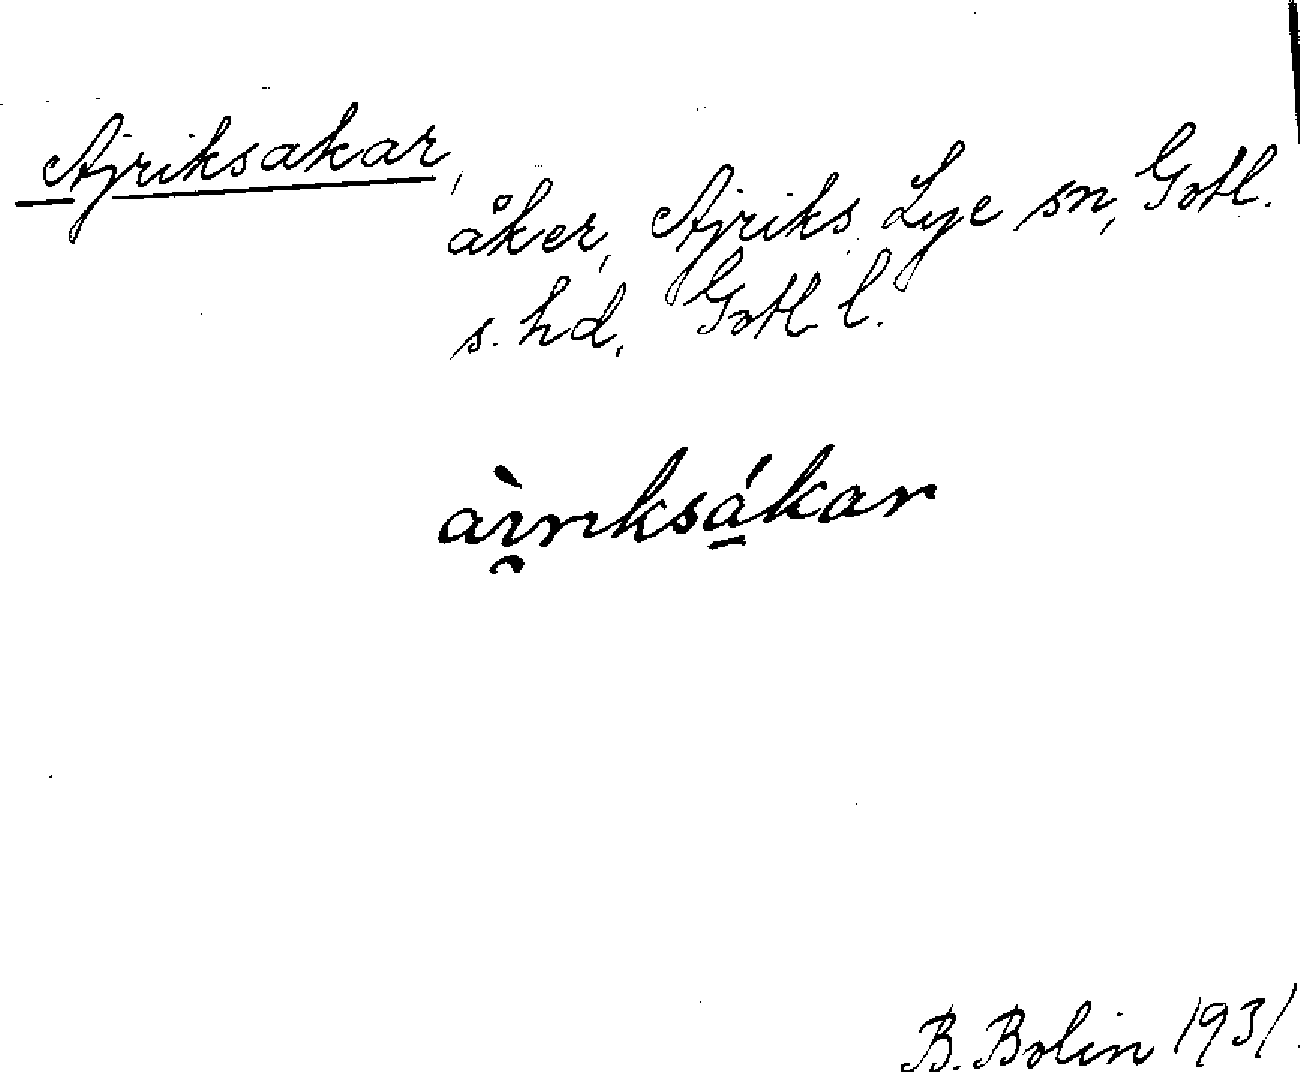 Ajriksakar,
åker, Ajriks, Lye sn, Gotl.
s. hd, Gotl l.
ài̯riksákar
B. Bolin 1931.